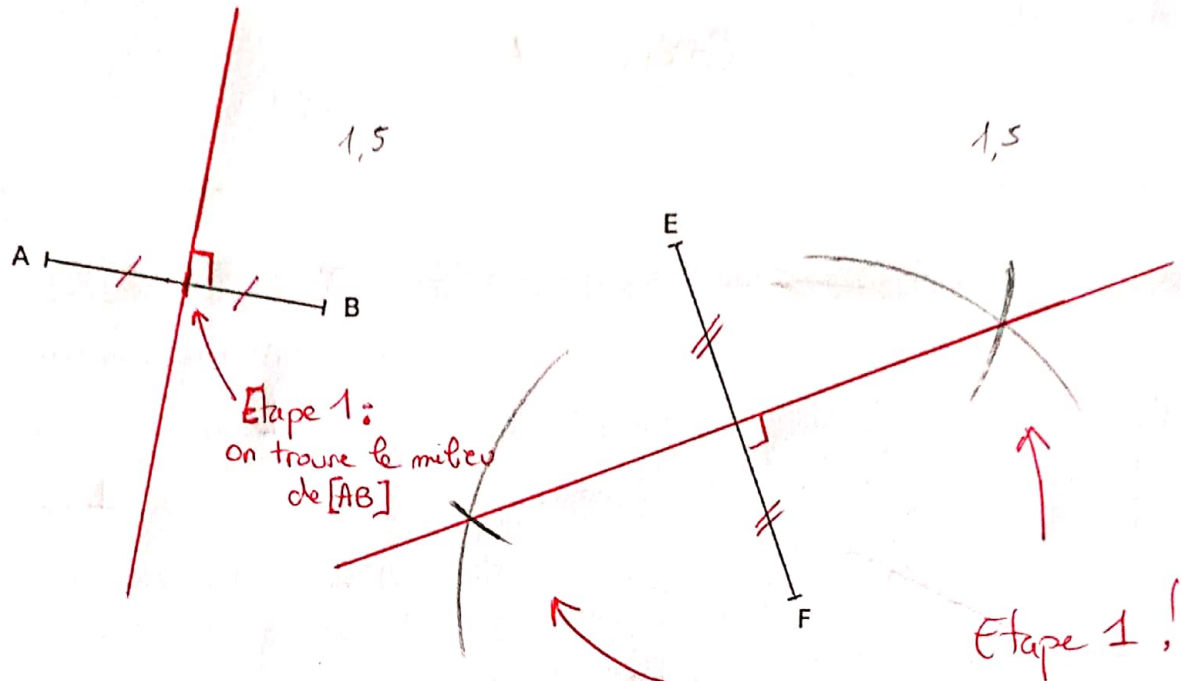 1,5
1,5
E
A
B
Etape 1 :
on trouve le milieu
de [AB]
F
Etape 1 !